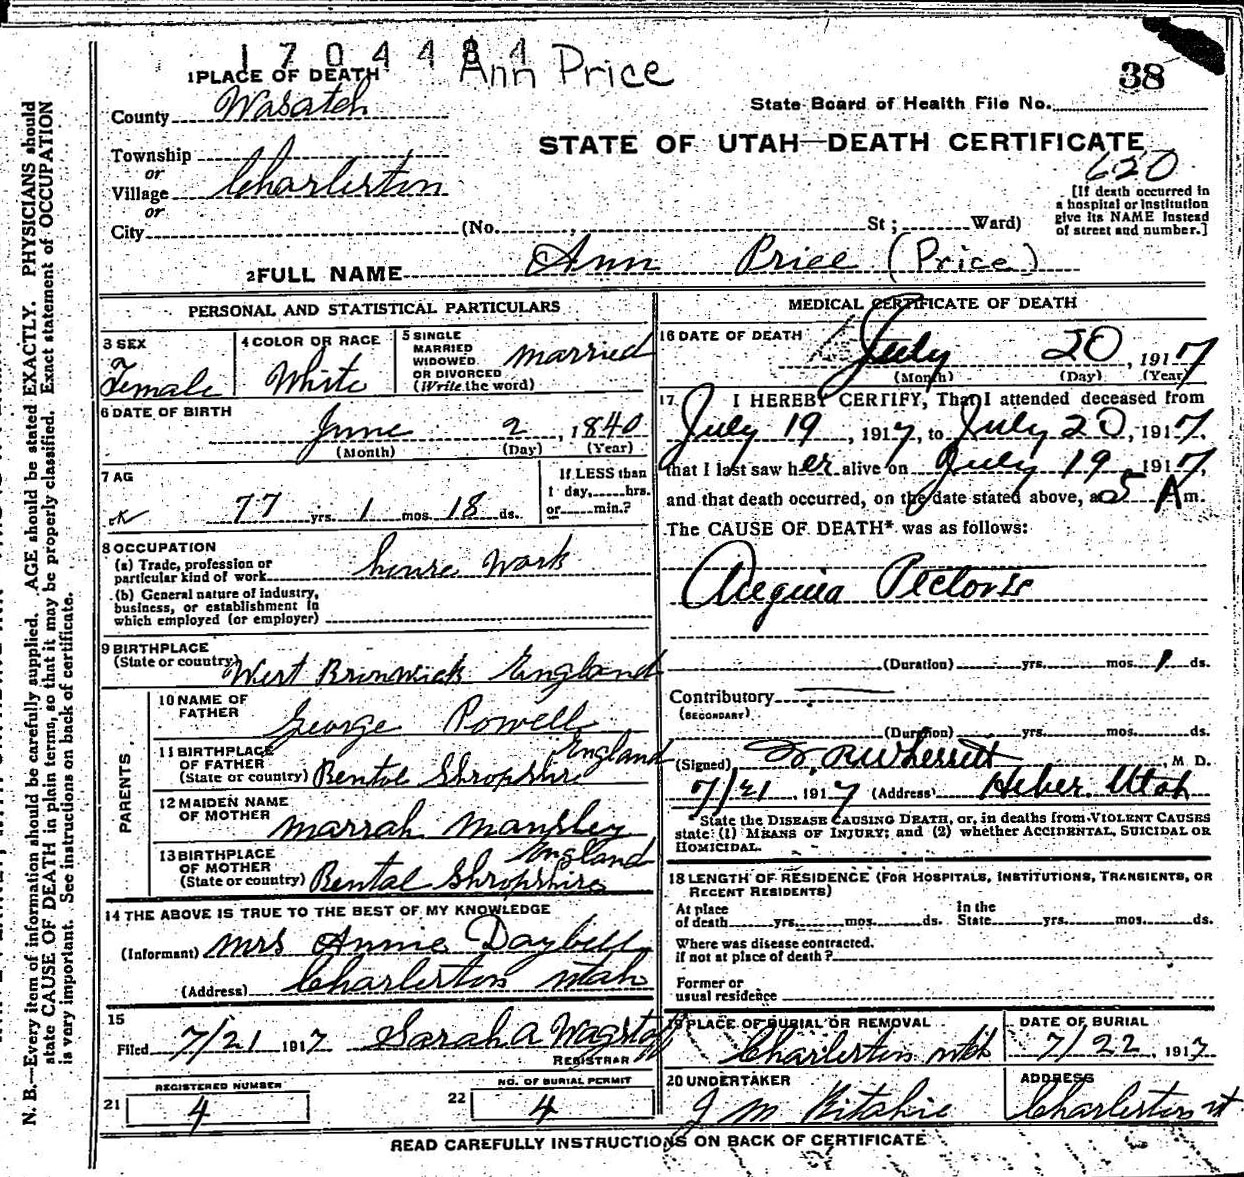 1704484
Ann Price
38
1 PLACE OF DEATH
County Wasatch
State Board of Health File No.
STATE OF UTAH—DEATH CERTIFICATE
620
Township
or
Village Charleston
or
City (No. , St; Ward)
[If death occurred in
a hospital or institution
give its NAME instead
of street and number.]
2 FULL NAME Ann Price (Price)
PERSONAL AND STATISTICAL PARTICULARS
3 SEX Female
4 COLOR OR RACE White
5 SINGLE
MARRIED
WIDOWED
OR DIVORCED
(Write the word) married
6 DATE OF BIRTH
June 2, 1840
(Month) (Day) (Year)
7 AG
77 yrs. 1 mos. 18 ds.
If LESS than
1 day, hrs.
or min.?
8 OCCUPATION
(a) Trade, profession or
particular kind of work house work
(b) General nature of industry,
business, or establishment in
which employed (or employer)
9 BIRTHPLACE
(State or country) West Bromwick England
PARENTS
10 NAME OF
FATHER George Powell
11 BIRTHPLACE
OF FATHER England
(State or country) Bental Shropshire
12 MAIDEN NAME
OF MOTHER Marrah Mansley
13 BIRTHPLACE
OF MOTHER England
(State or country) Bental Shropshire
14 THE ABOVE IS TRUE TO THE BEST OF MY KNOWLEDGE
(Informant) Mrs Annie Daybell
(Address) Charleston Utah
15
Filed 7/21 1917 Sarah A Wagstaff
REGISTRAR
REGISTERED NUMBER
21 4
NO. OF BURIAL PERMIT
22 4
MEDICAL CERTIFICATE OF DEATH
16 DATE OF DEATH
July 20, 1917
(Month) (Day) (Year)
17 I HEREBY CERTIFY, That I attended deceased from
July 19, 1917, to July 20, 1917,
that I last saw her alive on July 19, 1917,
and that death occurred, on the date stated above, at 5 A m.
The CAUSE OF DEATH* was as follows:
Angina Pectoris
(Duration) yrs. mos. 1 ds.
Contributory
(SECONDARY)
(Duration) yrs. mos. ds.
(Signed) R Wherritt, M D.
7/21, 1917 (Address) Heber Utah
State the DISEASE CAUSING DEATH, or, in deaths from VIOLENT CAUSES
state: (1) MEANS OF INJURY; and (2) whether ACCIDENTAL, SUICIDAL OR
HOMICIDAL.
18 LENGTH OF RESIDENCE (FOR HOSPITALS, INSTITUTIONS, TRANSIENTS, OR
RECENT RESIDENTS)
At place
of death yrs. mos. ds.
In the
State yrs. mos. ds.
Where was disease contracted.
if not at place of death?
Former or
usual residence
19 PLACE OF BURIAL OR REMOVAL
Charleston Utah
DATE OF BURIAL
7/22, 1917
20 UNDERTAKER
J M Ritchie
ADDRESS
Charleston Ut
READ CAREFULLY INSTRUCTIONS ON BACK OF CERTIFICATE
N. B.—Every item of information should be carefully supplied. AGE should be stated EXACTLY. PHYSICIANS should
state CAUSE OF DEATH in plain terms, so that it may be properly classified. Exact statement of OCCUPATION
is very important. See instructions on back of certificate.